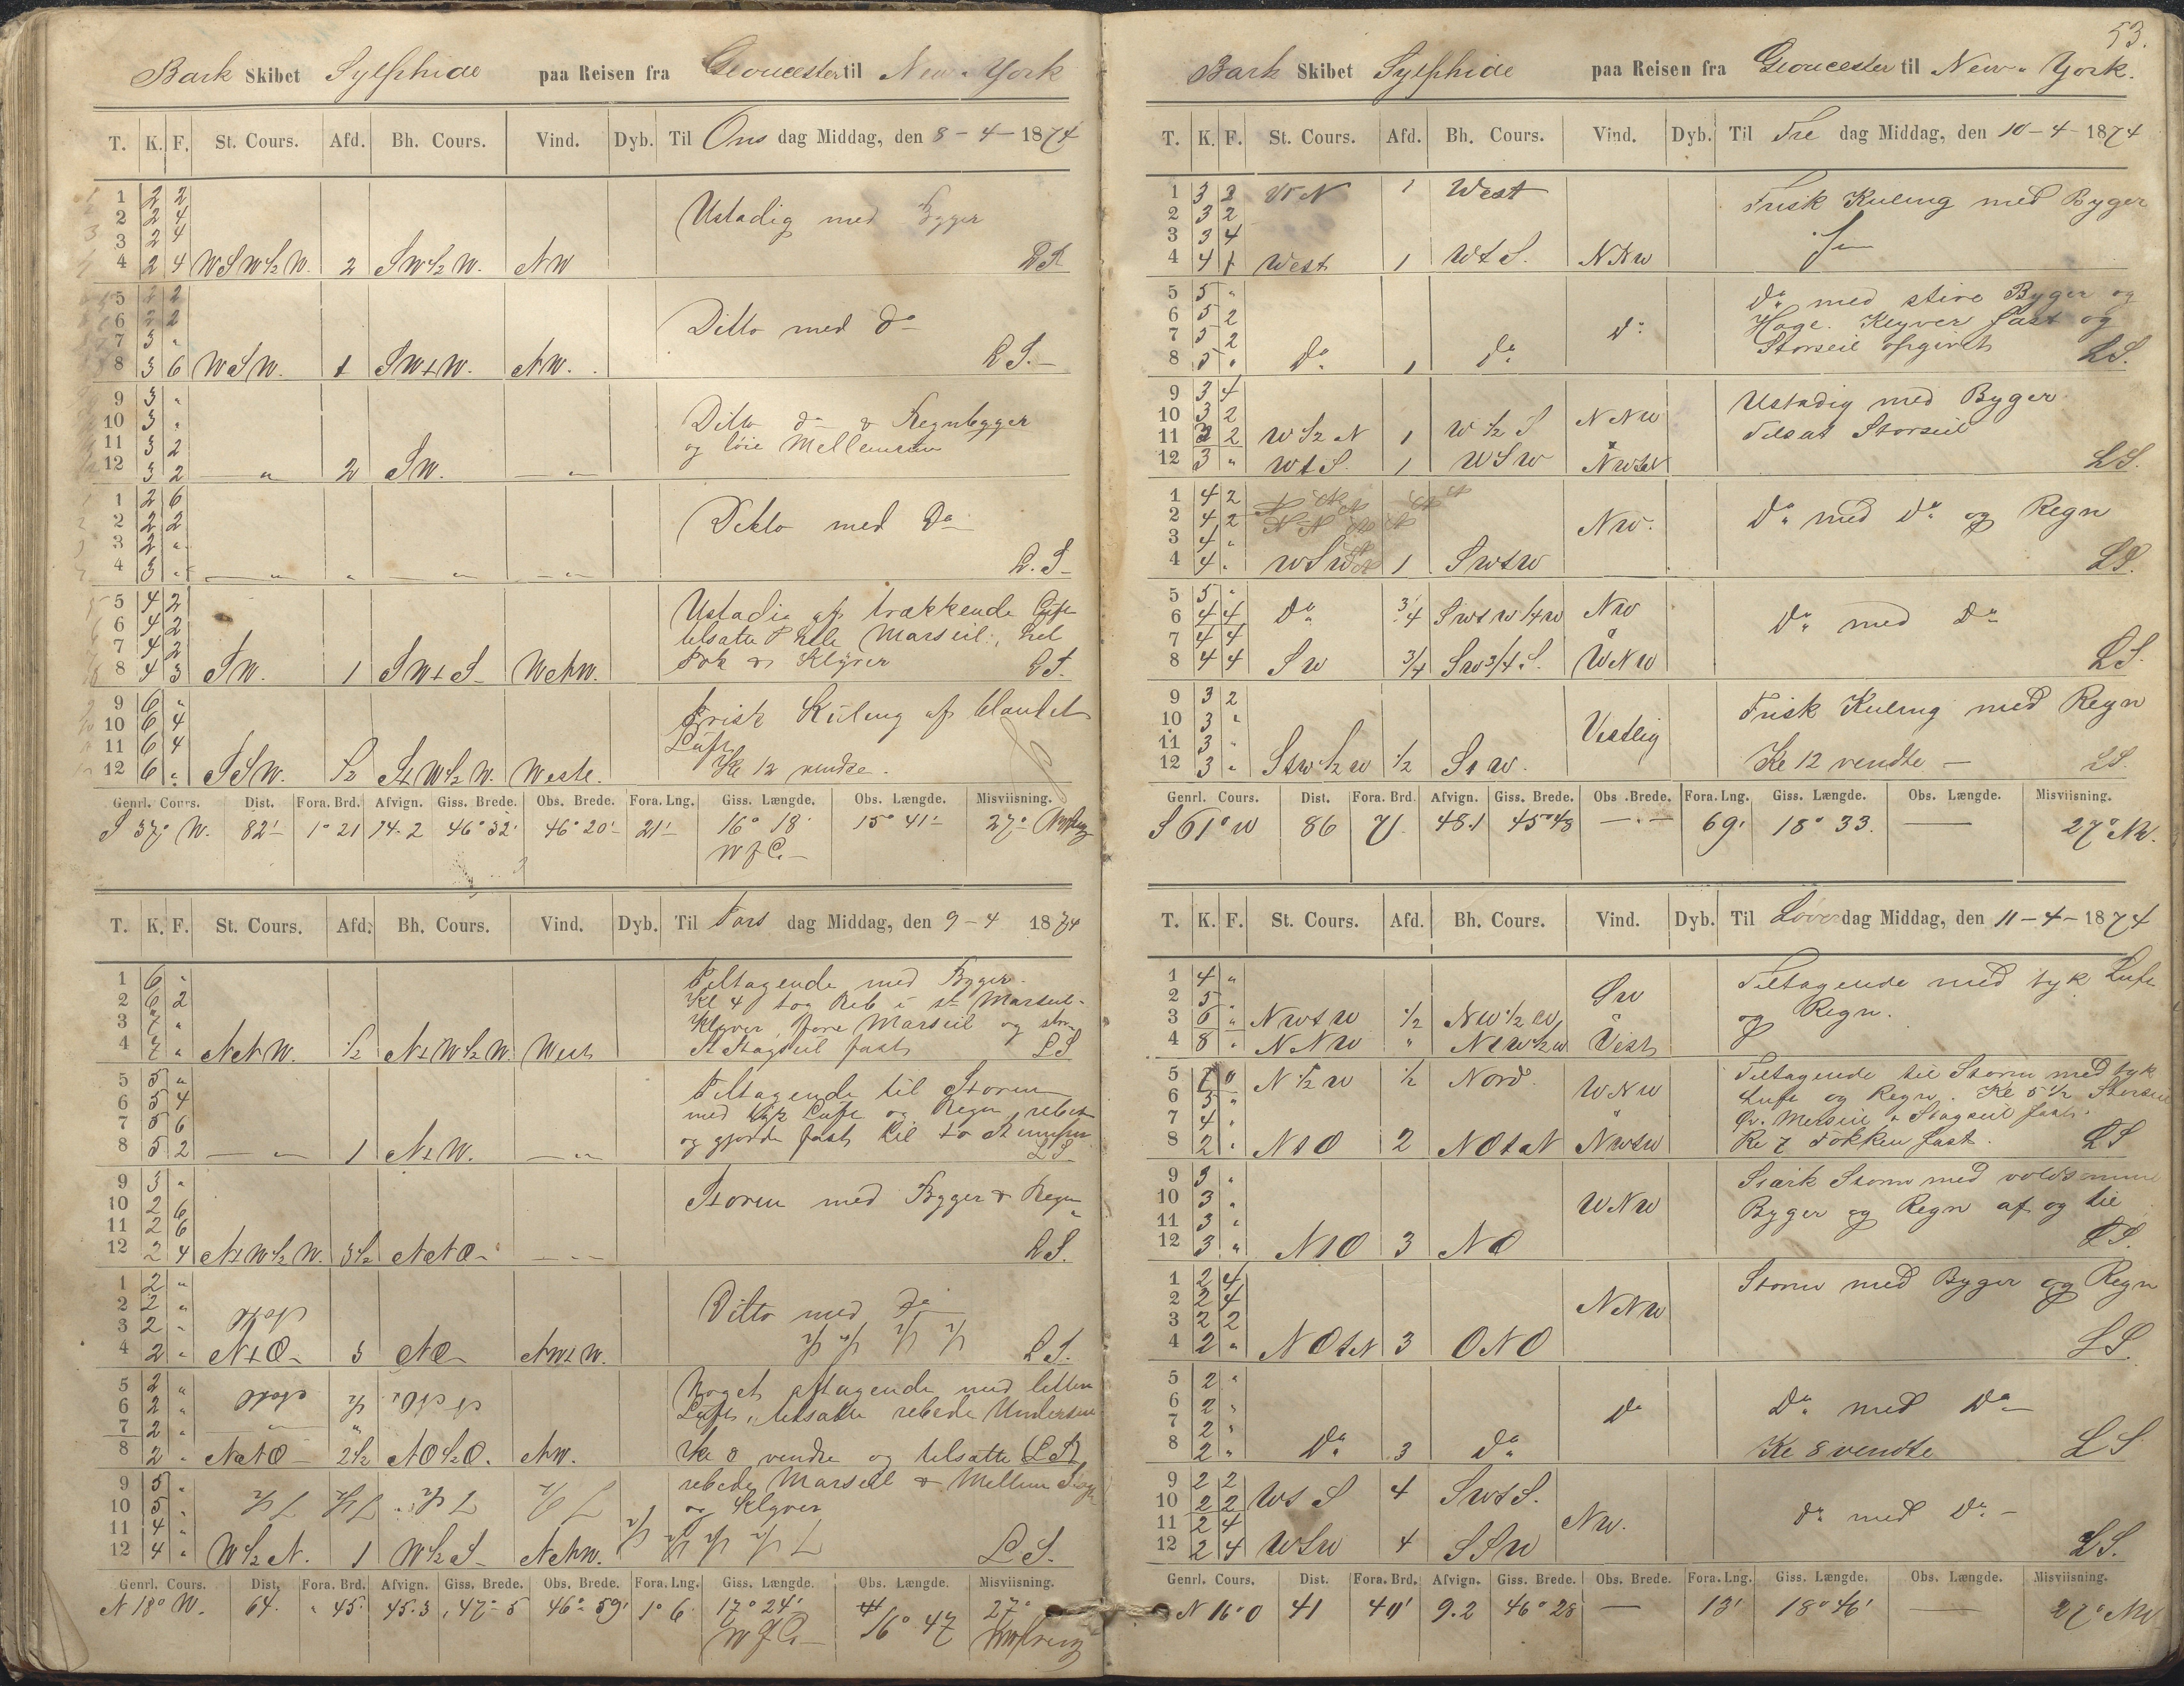 Bark Skibet Sylphide paa Reisen fra Gloucester til New-York
T. K. F. St. Cours. Afd. Bh. Cours. Vind. Dyb. Til Ons dag Middag, den 8-4-1874
1 2 2
2 2 4 Ustadig med Bygger
3 2 4
4 2 4 WSW½W. 2 SW½W. NW LS
5 2 2
6 2 2 Ditto med do
7 3 "
8 3 6 WSW. 1 SWtW. NW. LS.
9 3 "
10 3 " Ditto do & Regnbygger
11 3 2 og löie Mellemrum
12 3 2 — " 2 SW. — " —
1 2 6
2 2 2 Ditto med Do
3 2 "
4 3 " — " — " — " — — " — L.S.
5 4 2 Ustadig af trækkende Luft
6 4 2 tilsatte Marseil, hel
7 4 2 Fok & Klyver
8 4 3 SW. 1 SWtS. WNW. LS.
9 6 " Frisk Kuling af blandet
10 6 4 Luft
11 6 4
12 6 " SSW. ½ StW½W. Westl. Kl 12 vendte.
Genrl. Cours. Dist. Fora. Brd. Afvign. Giss. Brede. Obs. Brede. Fora. Lng. Giss. Længde. Obs. Længde. Misviisning.
S 37° W. 82' 1° 21 74.2 46° 32' 46° 20' 21' 16° 18' 15° 41' 27°
T. K. F. St. Cours. Afd. Bh. Cours. Vind. Dyb. Til Tors dag Middag, den 9-4 1874
1 6 " Tiltagende med Bygger.
2 6 2 Kl 4 tog Reb i st Marseil
3 7 " Klyver, fore Marseil og stor
4 7 " NNW. ½ NtW½W. West Stagseil fast LS
5 5 " Tiltagende til Storm
6 5 4 med tyk Luft og Regn, rebet
7 5 6 og gjorde fast
8 5 2 — " — 1 NtW. — " — LS
9 3 " Storm med Bygger & Regn
10 2 6
11 2 6
12 2 4 NtW½W. 3½ NNO — " — LS.
1 2 "
2 2 " Ditto med Do
3 2 "
4 2 " NtO 3 NO NWtW. LS.
5 2 " Noget aftagende med lettere
6 2 " Luft, tilsatte rebede Underseil
7 2 "
8 2 " NNO 2½ NO½O. NW. Kl 8 vendte og tilsatte LS
9 5 " rebede Marseil & Mellem Stagseil
10 5 " og Klyver
11 4 "
12 4 " W½N. 1 W½S NNW. LS.
Genrl. Cours. Dist. Fora. Brd. Afvign. Giss. Brede. Obs. Brede. Fora. Lng. Giss. Længde. Obs. Længde. Misviisning.
N 18° W. 64. " 45' 45.3 47° 5 46° 59' 1° 6' 17° 24' 16° 47 27°
53.
Bark Skibet Sylphide paa Reisen fra Gloucester til New-York.
T. K. F. St. Cours. Afd. Bh. Cours. Vind. Dyb. Til Fre dag Middag, den 10-4-1874
1 3 2 WtN 1 West Frisk Kuling med Byger
2 3 2
3 3 4
4 4 1 West 1 WtS. NNW
5 5 " Do med stive Byger og
6 5 2 Hage. Klyver fast og
7 5 2 Do Storseil opgivet
8 5 " Do 1 Do LS.
9 3 4 Ustadig med Byger
10 3 2 NNW Tilsat Storseil
11 3 2 W½N 1 W½S
12 3 " WtS. 1 WSW NWtN LS.
1 4 2
2 4 2 NW. Do med Do og Regn
3 4 "
4 4 " WSW 1 SWtW LS.
5 5 "
6 4 4 Do ¾ SWtW¼W NW Do med Do
7 4 4
8 4 4 SW ¾ SW¾S. WNW LS.
9 3 2 Frisk Kuling med Regn
10 3 " Vestlig
11 3 "
12 3 " StW½W ½ StW. Kl 12 vendte — LS.
Genrl. Cours. Dist. Fora. Brd. Afvign. Giss. Brede. Obs. Brede. Fora. Lng. Giss. Længde. Obs. Længde. Misviisning.
S 61° W 86 71. 48.1 45° 48 — 69' 18° 33. — 27° NW.
T. K. F. St. Cours. Afd. Bh. Cours. Vind. Dyb. Til Löver dag Middag, den 11-4-1874
1 4 " Tiltagende med tyk Luft
2 5 " SW og Regn.
3 6 " NWtW ½ NW½W
4 8 " NNW " NtW½W Vest
5 7 0 N½W ½ Nord. WNW Tiltagende til Storm med tyk
6 5 " Luft og Regn. Kl 5½ Storseil
7 4 " Gr. Merseil & Stagseil fast.
8 2 " NtO 2 NOtN NWtW Kl 7 Fokken fast. LS
9 3 " Stærk Storm med voldsomme
10 3 " WNW Byger og Regn af og til
11 3 "
12 3 " NtO 3 NO LS.
1 2 4 Storm med Byger og Regn
2 2 4 NNW
3 2 2
4 2 " NOtN 3 ONO LS.
5 2 "
6 2 " Do Do med Do
7 2 "
8 2 " Do 3 Do Kl 8 vendte LS
9 2 2 WtS 4 SWtS.
10 2 2 Do med Do
11 2 4 NW.
12 2 4 WSW 4 SSW LS.
Genrl. Cours. Dist. Fora. Brd. Afvign. Giss. Brede. Obs. Brede. Fora. Lng. Giss. Længde. Obs. Længde. Misviisning.
N 16° O 41 40' 9.2 46° 28 — 13' 18° 46' — 27° NW